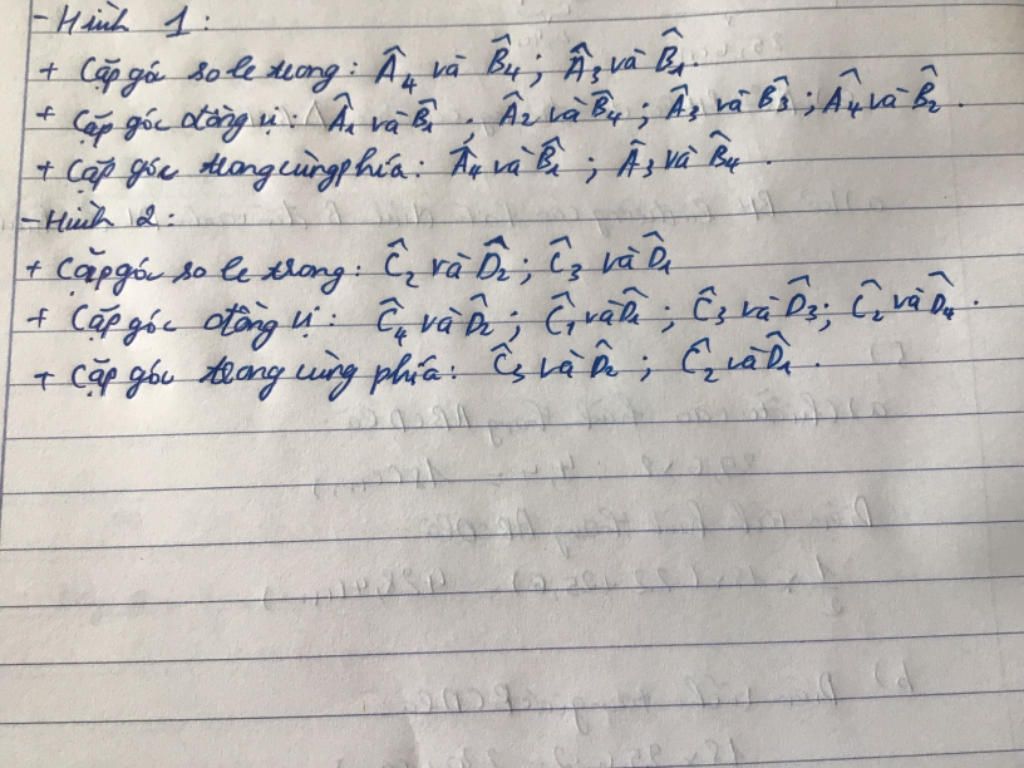 - Hình 1:
+ Cặp góc so le trong: Â₄ và B̂₄; Â₃ và B̂₁.
+ Cặp góc đồng vị: Â₁ và B̂₁; Â₂ và B̂₄; Â₃ và B̂₃; Â₄ và B̂₂.
+ Cặp góc trong cùng phía: Â₄ và B̂₁; Â₃ và B̂₄.
- Hình 2:
+ Cặp góc so le trong: Ĉ₂ và D̂₂; Ĉ₃ và D̂₁
+ Cặp góc đồng vị: Ĉ₄ và D̂₂; Ĉ₁ và D̂₁; Ĉ₃ và D̂₃; Ĉ₂ và D̂₄.
+ Cặp góc trong cùng phía: Ĉ₃ và D̂₂; Ĉ₂ và D̂₁.